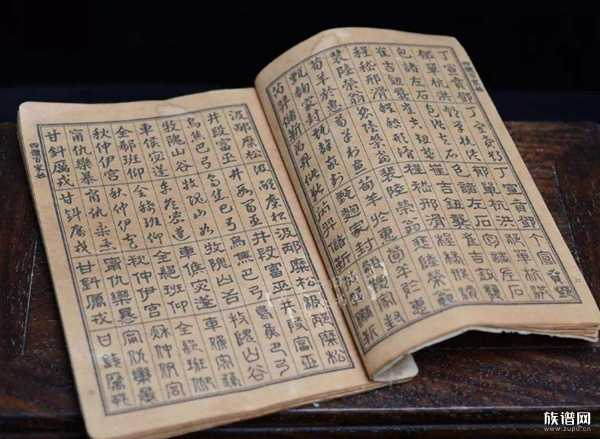 丁宣賁鄧丁宣賁鄧丁宣賁鄧
郁單杭洪郁單杭洪郁單杭洪
包諸左石包諸左石包諸左石
崔吉鈕龔崔吉鈕龔崔吉鈕龔
程嵇邢滑程嵇邢滑程嵇邢滑
裴陸榮翁裴陸榮翁裴陸榮翁
荀羊於惠荀羊於惠荀羊於惠
甄麴家封甄麴家封甄麴家封
芮羿儲靳芮羿儲靳芮羿儲靳
汲邴糜松汲邴糜松汲邴糜松汲邴糜松
井段富巫井段富巫井段富巫井段富巫
烏焦巴弓烏焦巴弓烏焦巴弓烏焦巴弓
牧隗山谷牧隗山谷牧隗山谷牧隗山谷
車侯宓蓬車侯宓蓬車侯宓蓬車侯宓蓬
全郗班仰全郗班仰全郗班仰全郗班仰
秋仲伊宮秋仲伊宮秋仲伊宮秋仲伊宮
甯仇欒暴甯仇欒暴甯仇欒暴甯仇欒暴
甘鈄厲戎甘鈄厲戎甘鈄厲戎甘鈄厲戎
四體百家姓
族谱网
www.zupu.cn